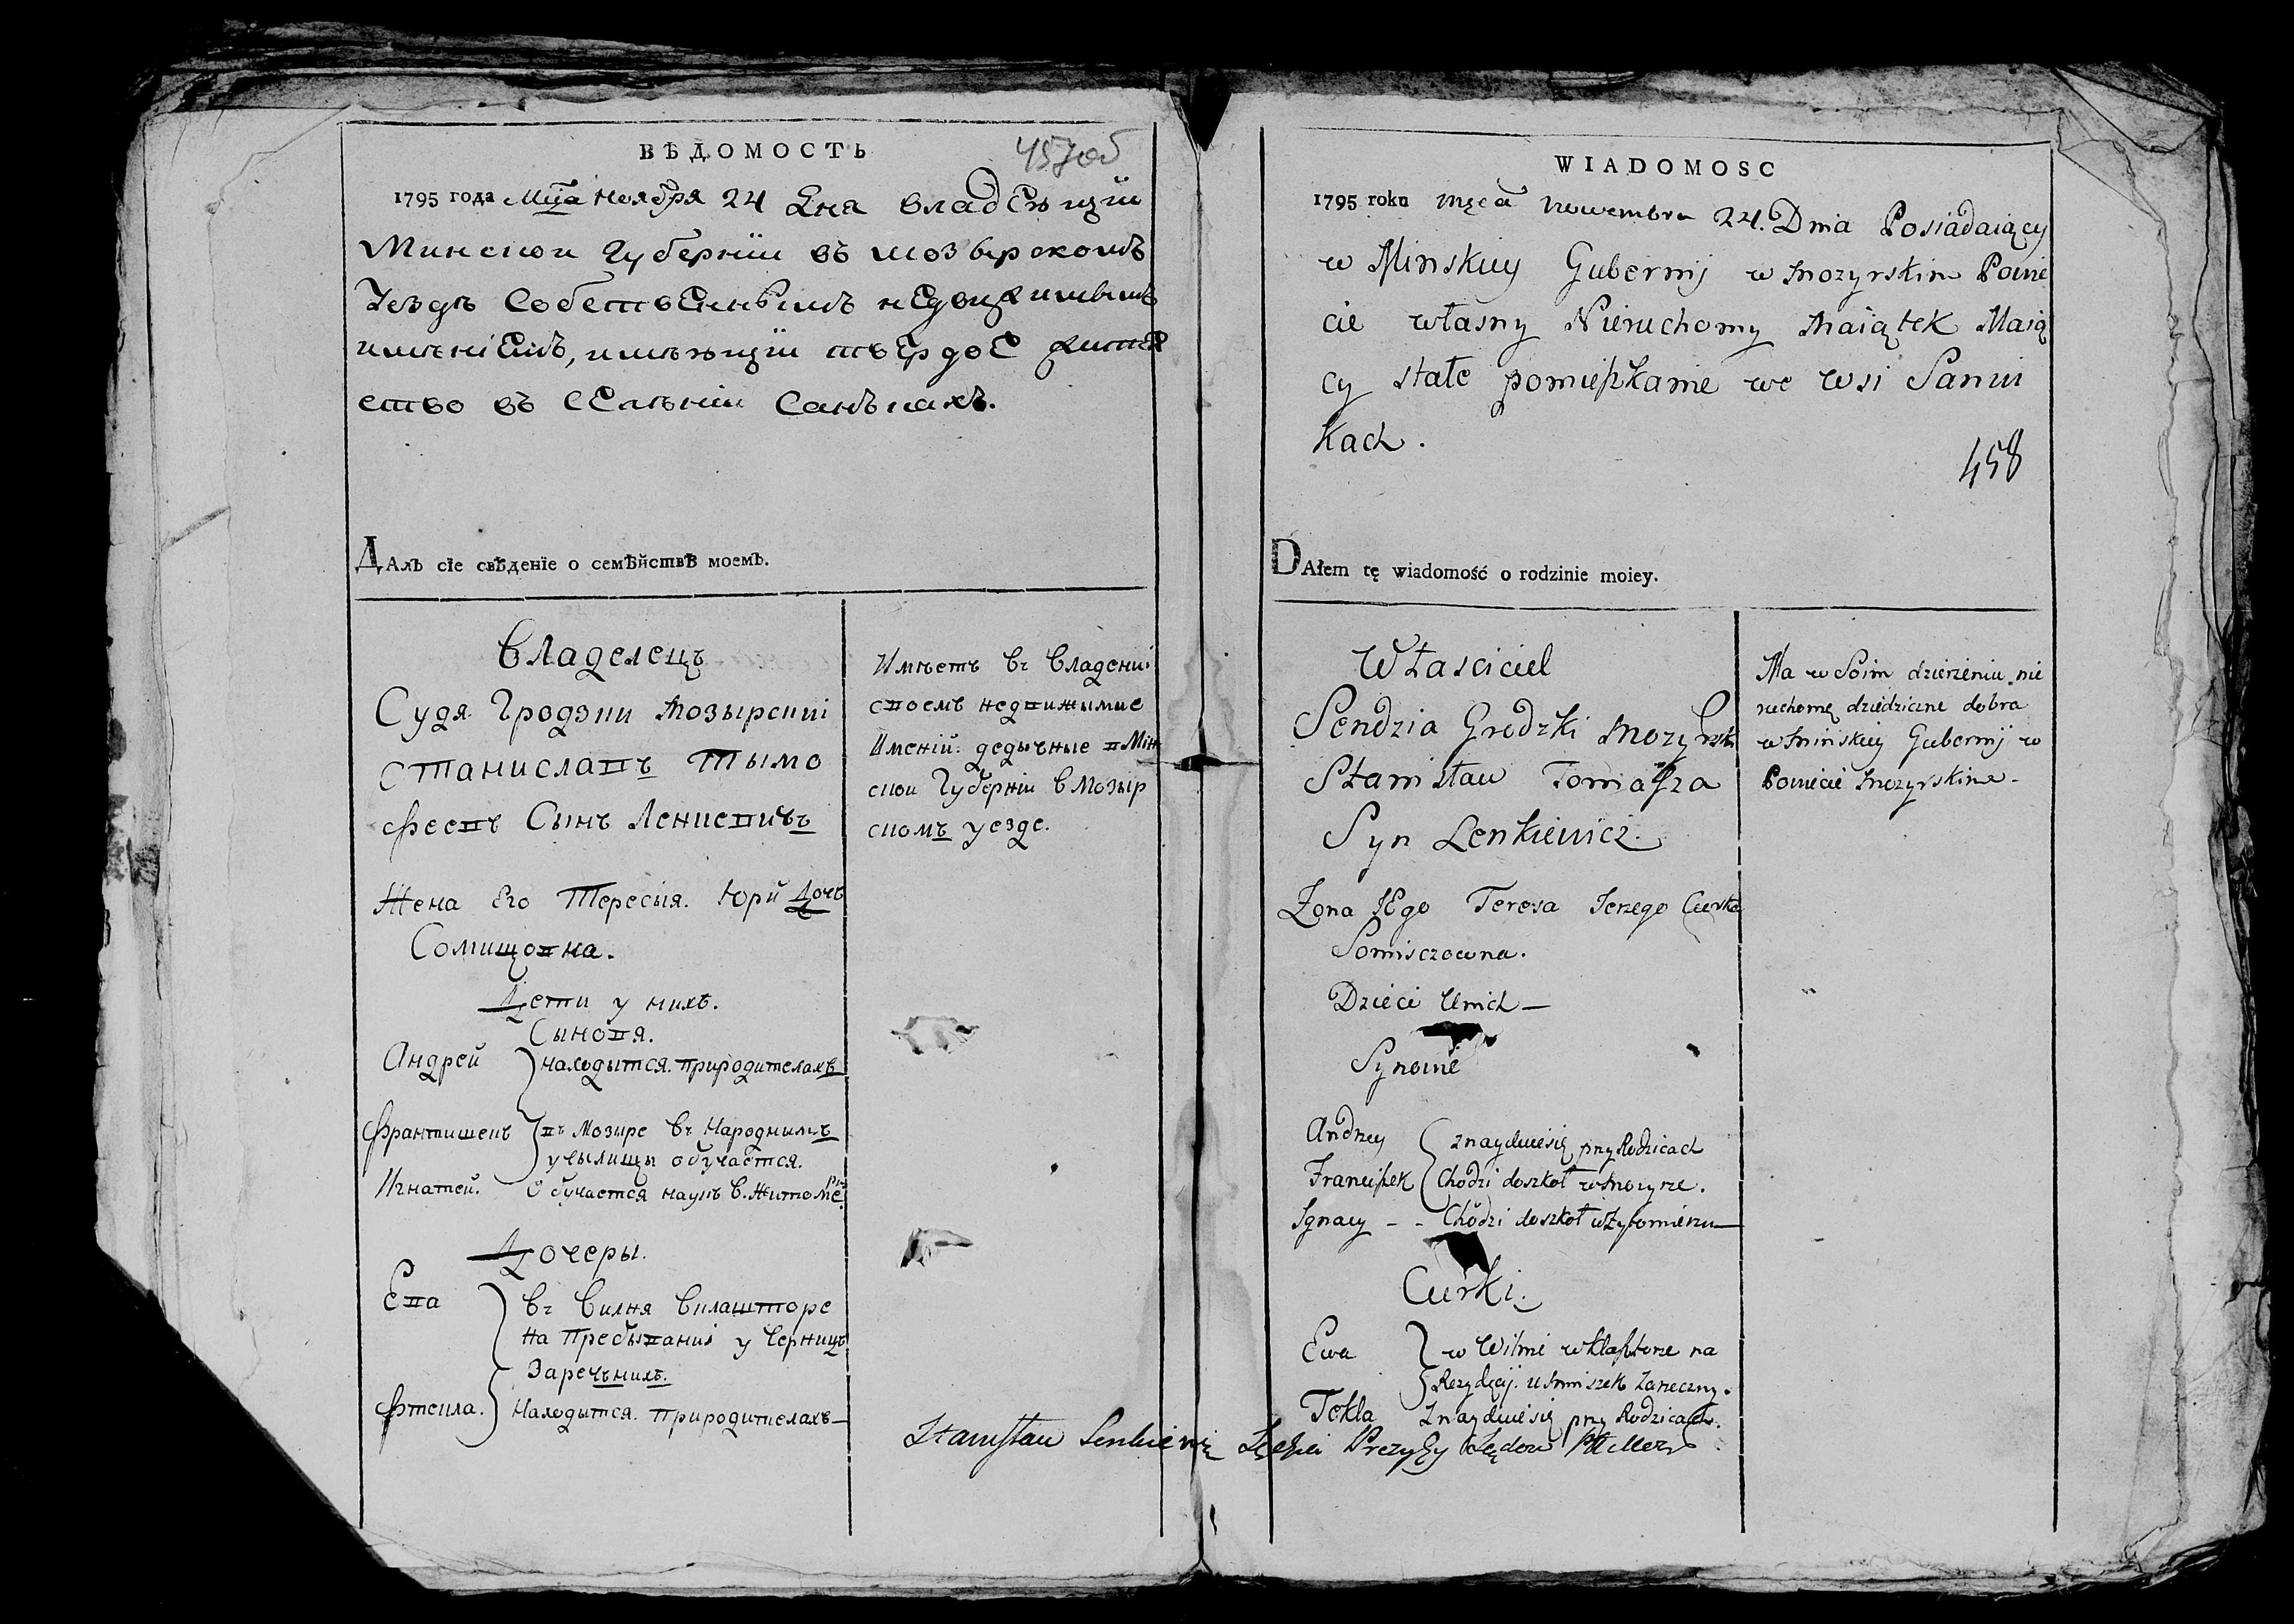 ВѢДОМОСТЬ
457об
1795 года Мца Ноября 24 дня владѣющїи
Минской Губернїи въ мозырскомъ
Уездѣ Собственнымъ недвижимымъ
имѣнїемъ, имѣющїи твердое жител
ство въ сеаѣнїи Санюках.
ДАлЪ сїе свѣденїе о семѣйствѣ моемЪ.
Владелецъ
Судя Гродзки Мозырский
Станиславъ Тымо
феевъ Сынъ Ленкевичъ
Жена Его Тересыя. Юри Дочъ
Сомищовна.
Дети у нихъ.
Сыновя.
Андрей находытся. при родителахъ
Франтишекъ въ Мозыре въ Народнымъ
учылищы обучается.
Игнатей. Обучается наукъ в. Житоме
ри
Дочеры.
Ева въ Вилня вклашторе
на Пребываниі у Черницъ
Заречъныхъ.
Фтекла. Находытся. при родителахъ
Имѣетъ въ Владениі
своемъ недвижимие
Имений. дедычные в Мин
скои Губернiи в Мозыр
скомъ уезде.
WIADOMOSC
1795 roku Męca Nowembra 24. Dnia Posiadaiący
w Minskiey Gubernij w Mozyrskim Powie
cie własny Nieruchomy Maiątek Maią
cy stałe pomieszkanie we wsi Saniu
kach.
458
DAłem tę wiadomość o rodzinie moiey.
Własciciel
Sendzia Grodzki Mozyrski
Stanisław Tomasza
Syn Lenkiewicz.
Żona JEgo Teresa Jerzego Curka
Somisczowna.
Dzieci Unich
Synowie
Andrzey znayduiesię przy Rodzicach
Franciszek Chodzi doszkoł wMozyrze.
Ignacy - - Chodzi doszkoł wżytomierzu
Curki.
Ewa w Wilnie wklasztorze na
Rezydęcij. u Mniszek Zarzeczny.
Tekla Znayduiesię przy Rodzicach.
Ma w Soim dzierżeniu nie
ruchome dziedziczne dobra
w Minskiey Gubernij w
Powiecie Mozyrskim
Stanisław Lenkiewicz